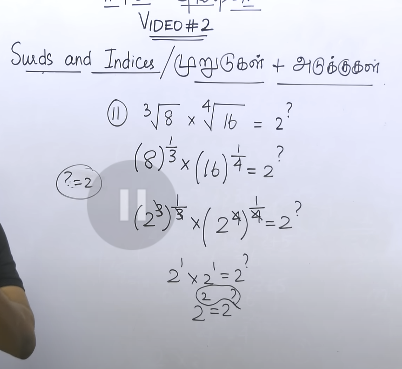 VIDEO #2
Surds and Indices / முறுடுகள் + அடுக்குகள்
⑪ ³√8 × ⁴√16 = 2^?
(8)^(1/3) × (16)^(1/4) = 2^?
?=2
(2^3)^(1/3) × (2^4)^(1/4) = 2^?
2^1 × 2^1 = 2^?
2^2 = 2^?